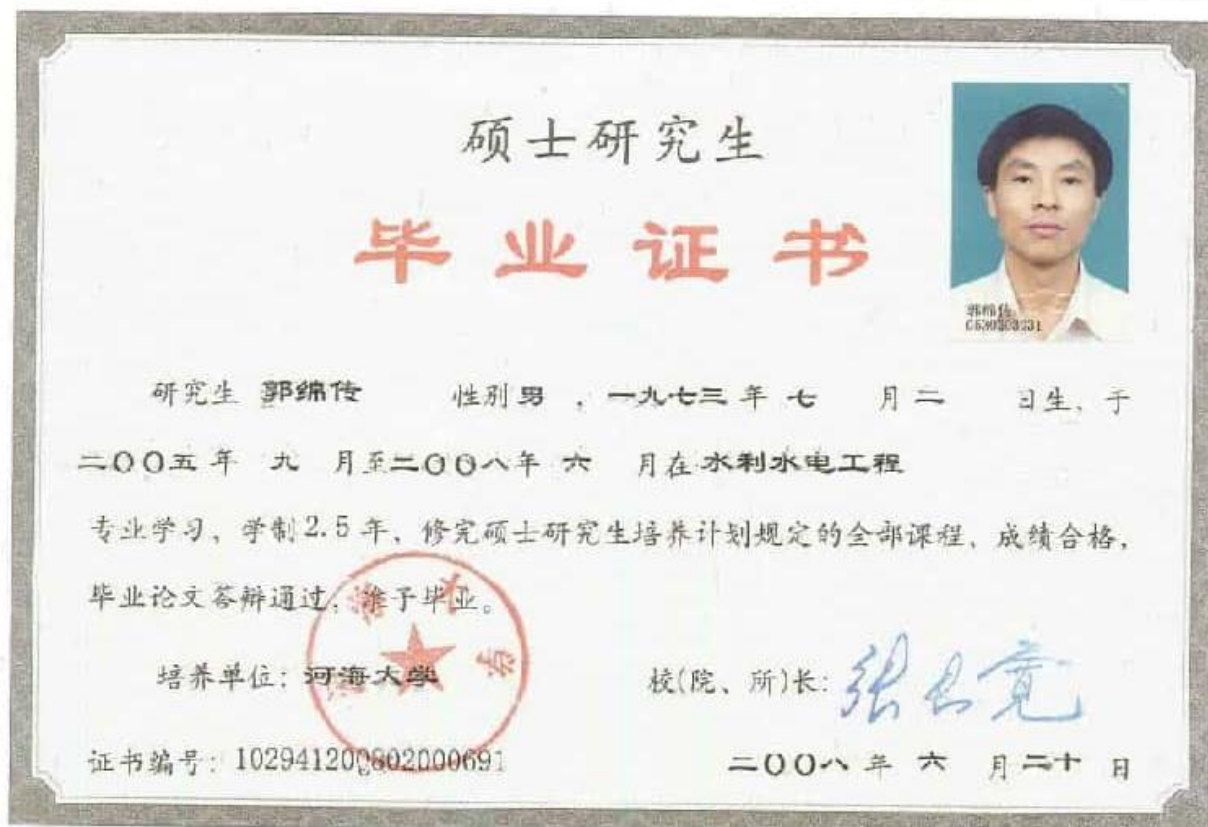 硕士研究生
毕业证书
郭绵传
研究生 郭绵传 性别 男 ，一九七三 年 七 月 二 日生、于
二〇〇五 年 九 月至 二〇〇八 年 六 月在 水利水电工程
专业学习、学制2.5年、修完硕士研究生培养计划规定的全部课程、成绩合格，
毕业论文答辩通过，准予毕业。
培养单位：河海大学
校(院、所)长：张长宽
证书编号：102941200802000691
二〇〇八 年 六 月 二十 日